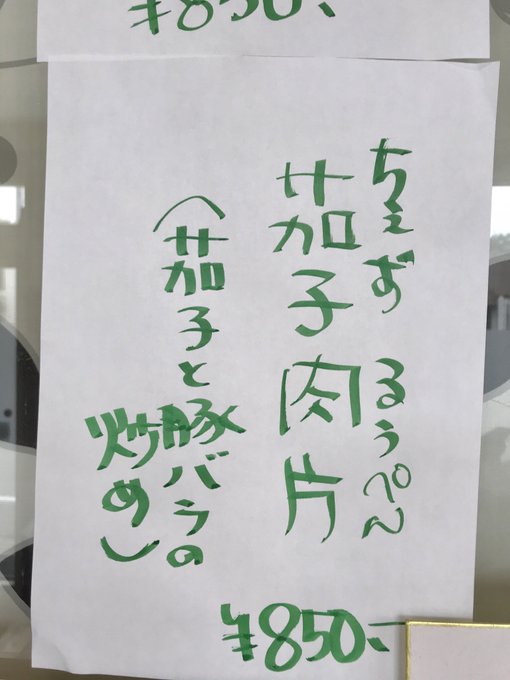 ¥850-
ちぇず るぅぺん
茄子肉片
(茄子と豚バラの
炒め)
¥850-